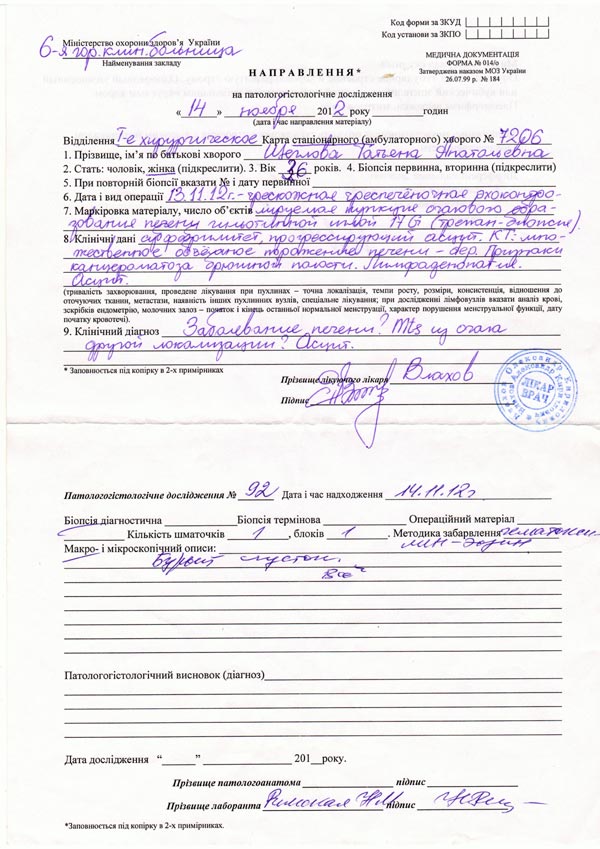 Код форми за ЗКУД
Код установи за ЗКПО
Міністерство охорони здоров'я України
6-я гор. клин. больница
Найменування закладу
МЕДИЧНА ДОКУМЕНТАЦІЯ
ФОРМА № 014/о
Затверджена наказом МОЗ України
26.07.99 р. № 184
НАПРАВЛЕННЯ*
на патологогістологічне дослідження
« 14 » ноября 2012 року годин
(дата і час направлення матеріалу)
Відділення I-е хирургическое Карта стаціонарного (амбулаторного) хворого № 7206
1. Прізвище, ім'я по батькові хворого Щеглова Татьяна Анатольевна
2. Стать: чоловік, жінка (підкреслити). 3. Вік 36 років. 4. Біопсия первинна, вторинна (підкреслити)
5. При повторній біопсії вказати № і дату первинної
6. Дата і вид операції 13.11.12г. - чрескожная чреспечёночная эхоконтро-
7. Маркіровка матеріалу, число об'єктів лируемая пункция очагового обра-
зования печени гильотинной иглой 14G (трепан-биопсия).
8. Клінічні дані афебрилитет, прогрессирующий асцит. КТ: мно-
жественное объёмное поражение печени - Признаки
канцероматоза брюшной полости. Лимфаденопатия.
Асцит.
(тривалість захворювання, проведене лікування при пухлинах – точна локалізація, темпи росту, розміри, консистенція, відношення до
оточуючих тканин, метастази, наявність інших пухлинних вузлів, спеціальне лікування; при дослідженні лімфовузлів вказати аналіз крові,
зскрібків ендометрію, молочних залоз – початок і кінець останньої нормальної менструації, характер порушення менструальної функції, дату
початку кровотечі).
9. Клінічний діагноз Заболевание печени? Mts из очага
другой локализации? Асцит.
* Заповнюється під копірку в 2-х примірниках
Прізвище лікуючого лікаря Влахов
Підпис
ЛІКАР
ВРАЧ
Патологогістологічне дослідження № 92 Дата і час надходження 14.11.12г
Біопсія діагностична Біопсія термінова Операційний матеріал
Кількість шматочків 1, блоків 1. Методика забарвлення гематокси-
лин-эозин
Макро- і мікроскопічний описи:
Бурый
всё
Патологогістологічний висновок (діагноз)
Дата дослідження "" 201 року.
Прізвище патологоанатома підпис
Прізвище лаборанта підпис
*Заповнюється під копірку в 2-х примірниках.